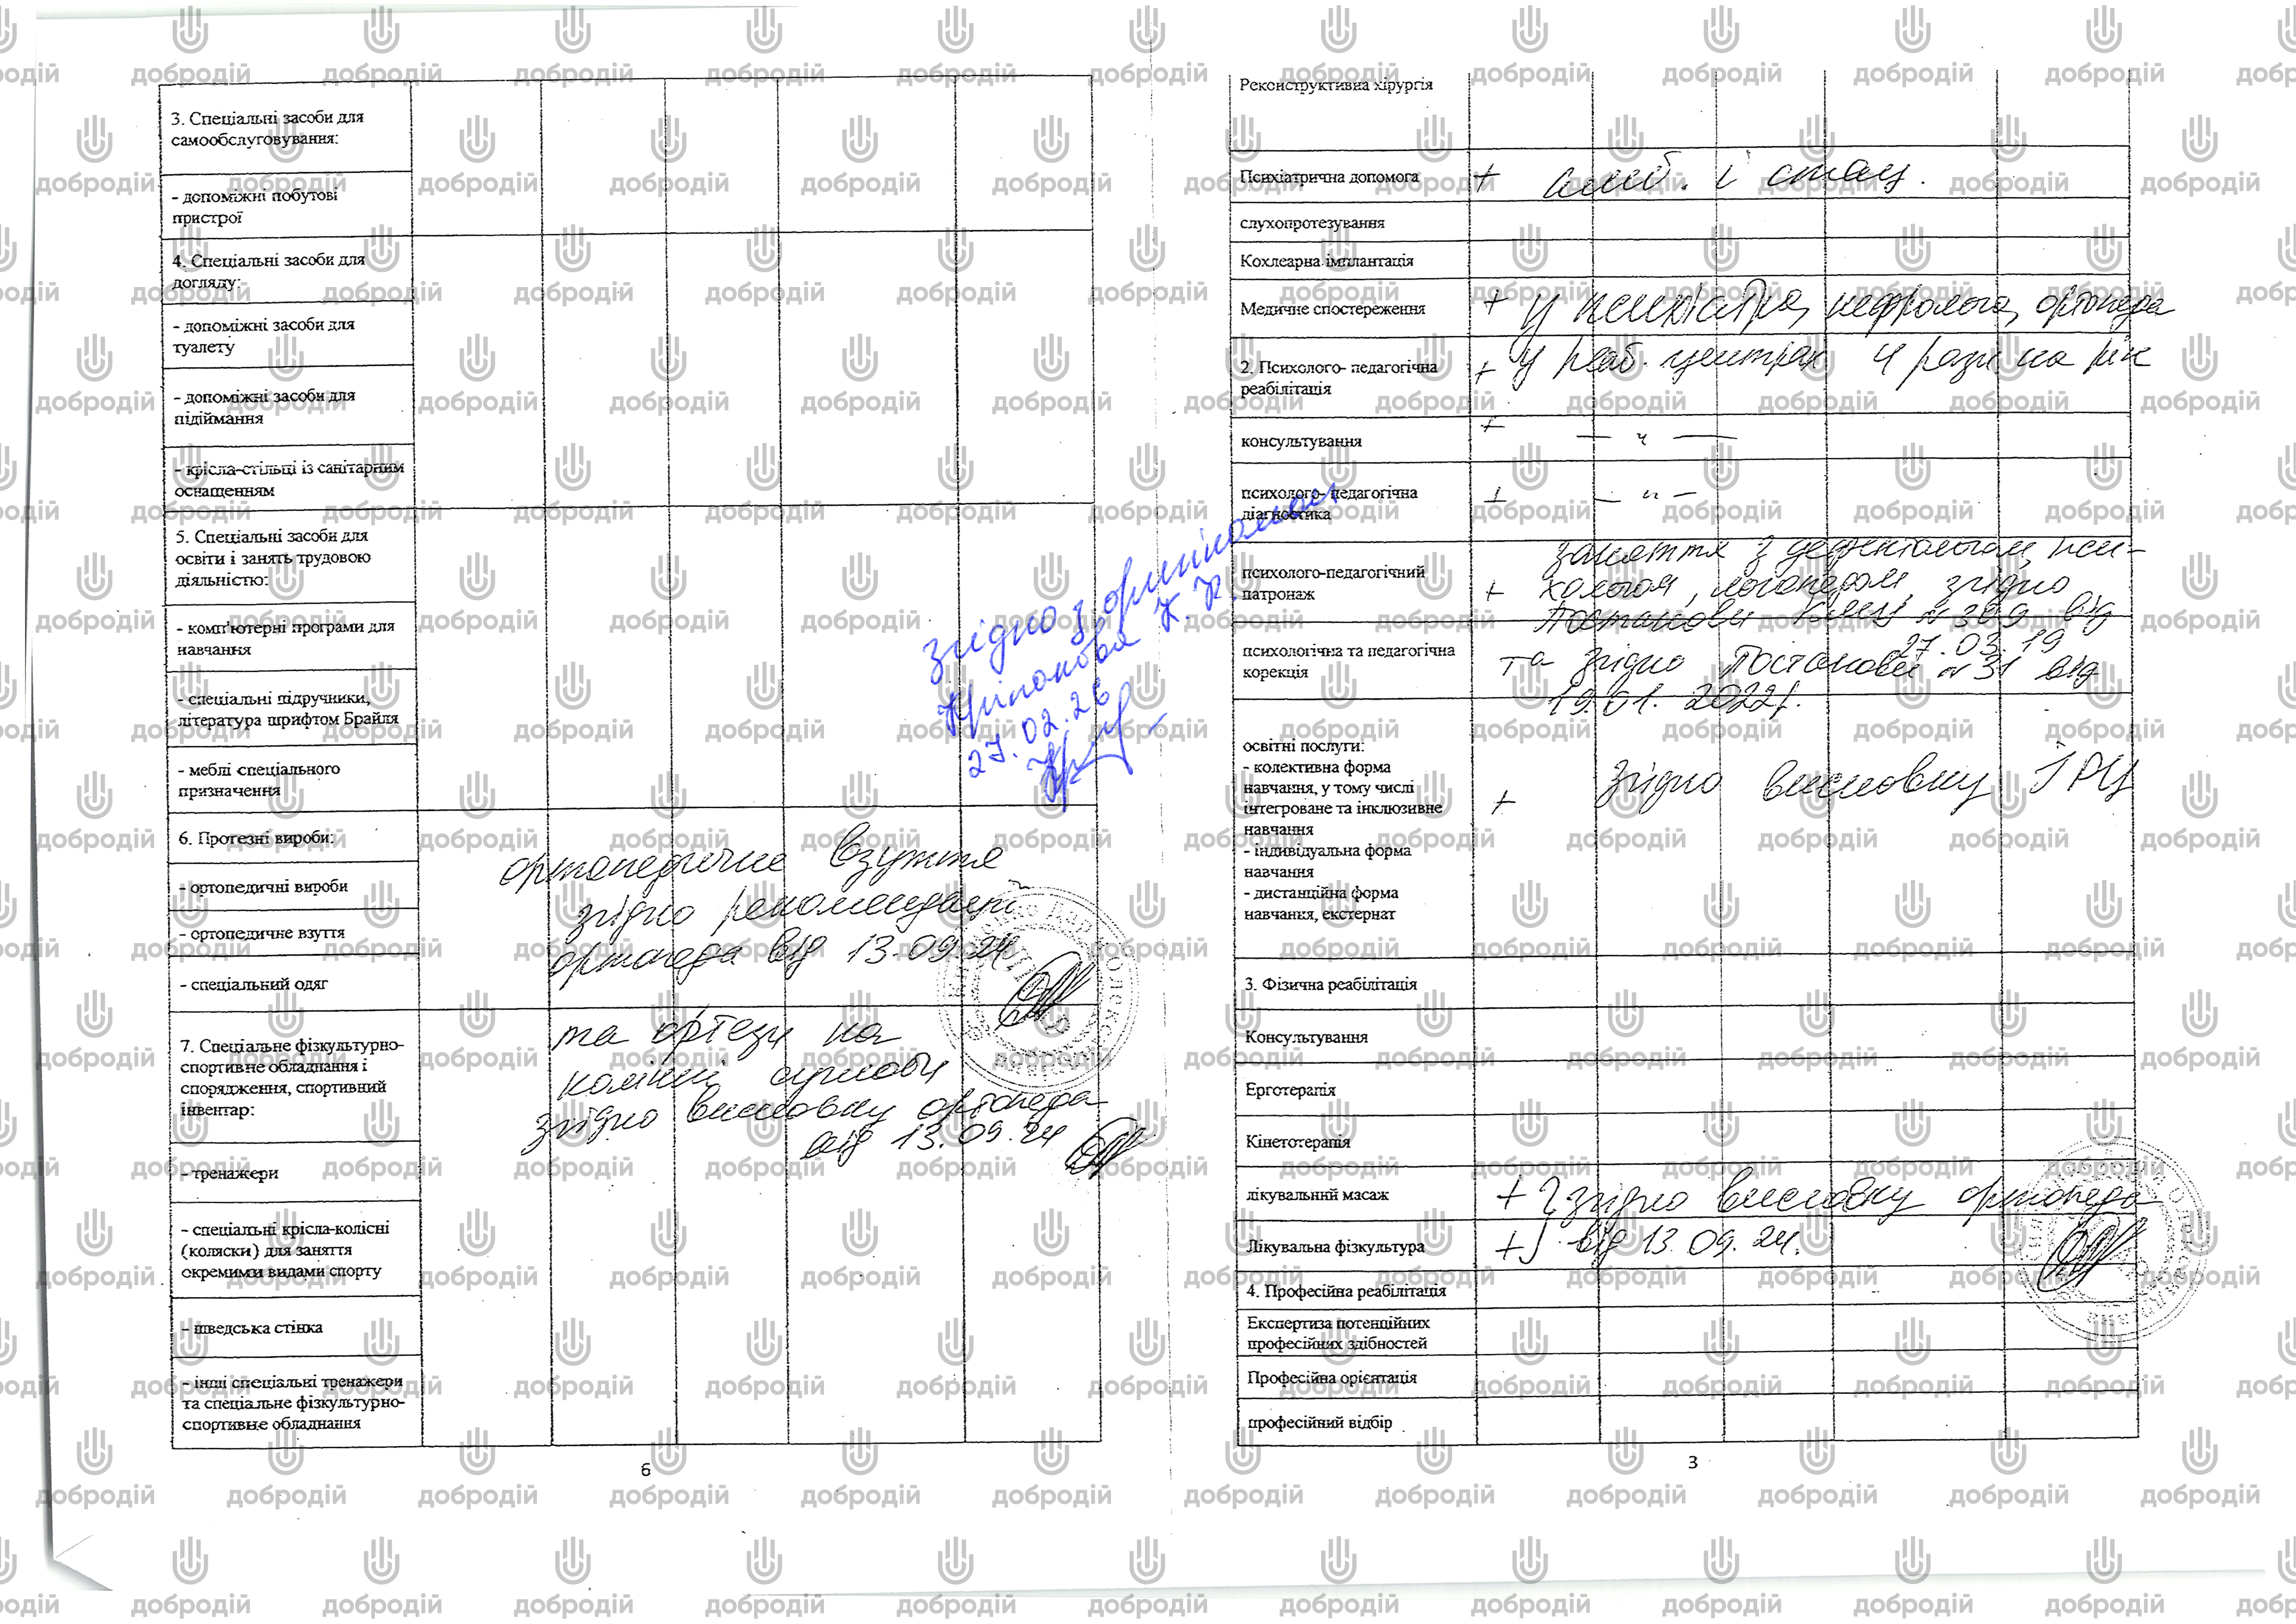 3. Спеціальні засоби для
самообслуговування:
- допоміжні побутові
пристрої
4. Спеціальні засоби для
догляду:
- допоміжні засоби для
туалету
- допоміжні засоби для
підіймання
- крісла-стільці із санітарним
оснащенням
5. Спеціальні засоби для
освіти і занять трудовою
діяльністю:
- комп'ютерні програми для
навчання
- спеціальні підручники,
література шрифтом Брайля
- меблі спеціального
призначення
6. Протезні вироби:
- ортопедичні вироби
- ортопедичне взуття
- спеціальний одяг
ортопедичне взуття
згідно рекомендації
ортопеда від 13.09.24
7. Спеціальне фізкультурно-
спортивне обладнання і
спорядження, спортивний
інвентар:
та ортези на
колінні суглоби
згідно висновку ортопеда
від 13.09.24
- тренажери
- спеціальні крісла-колісні
(коляски) для заняття
окремими видами спорту
- шведська стінка
- інші спеціальні тренажери
та спеціальне фізкультурно-
спортивне обладнання
6
згідно з оригіналом
27.02.26
Реконструктивна хірургія
Психіатрична допомога + амб. і стац.
слухопротезування
Кохлеарна імплантація
Медичне спостереження + у психіатра, нефролога, ортопеда
2. Психолого- педагогічна
реабілітація + у реаб. центрах 4 рази на рік
консультування + — " —
психолого- педагогічна
діагностика + — " —
психолого-педагогічний
патронаж +
заняття з дефектологом, пси-
хологом, логопедом, згідно
Постанови КМУ №309 від
27.03.19
психологічна та педагогічна
корекція
та згідно Постанови №31 від
19.01.2022р.
освітні послуги:
- колективна форма
навчання, у тому числі
інтегроване та інклюзивне
навчання
- індивідуальна форма
навчання
- дистанційна форма
навчання, екстернат
+ згідно висновку ІРЦ
3. Фізична реабілітація
Консультування
Ерготерапія
Кінетотерапія
лікувальний масаж + згідно висновку ортопеда
Лікувальна фізкультура + від 13.09.24.
4. Професійна реабілітація
Експертиза потенційних
професійних здібностей
Професійна орієнтація
професійний відбір
3
добродій